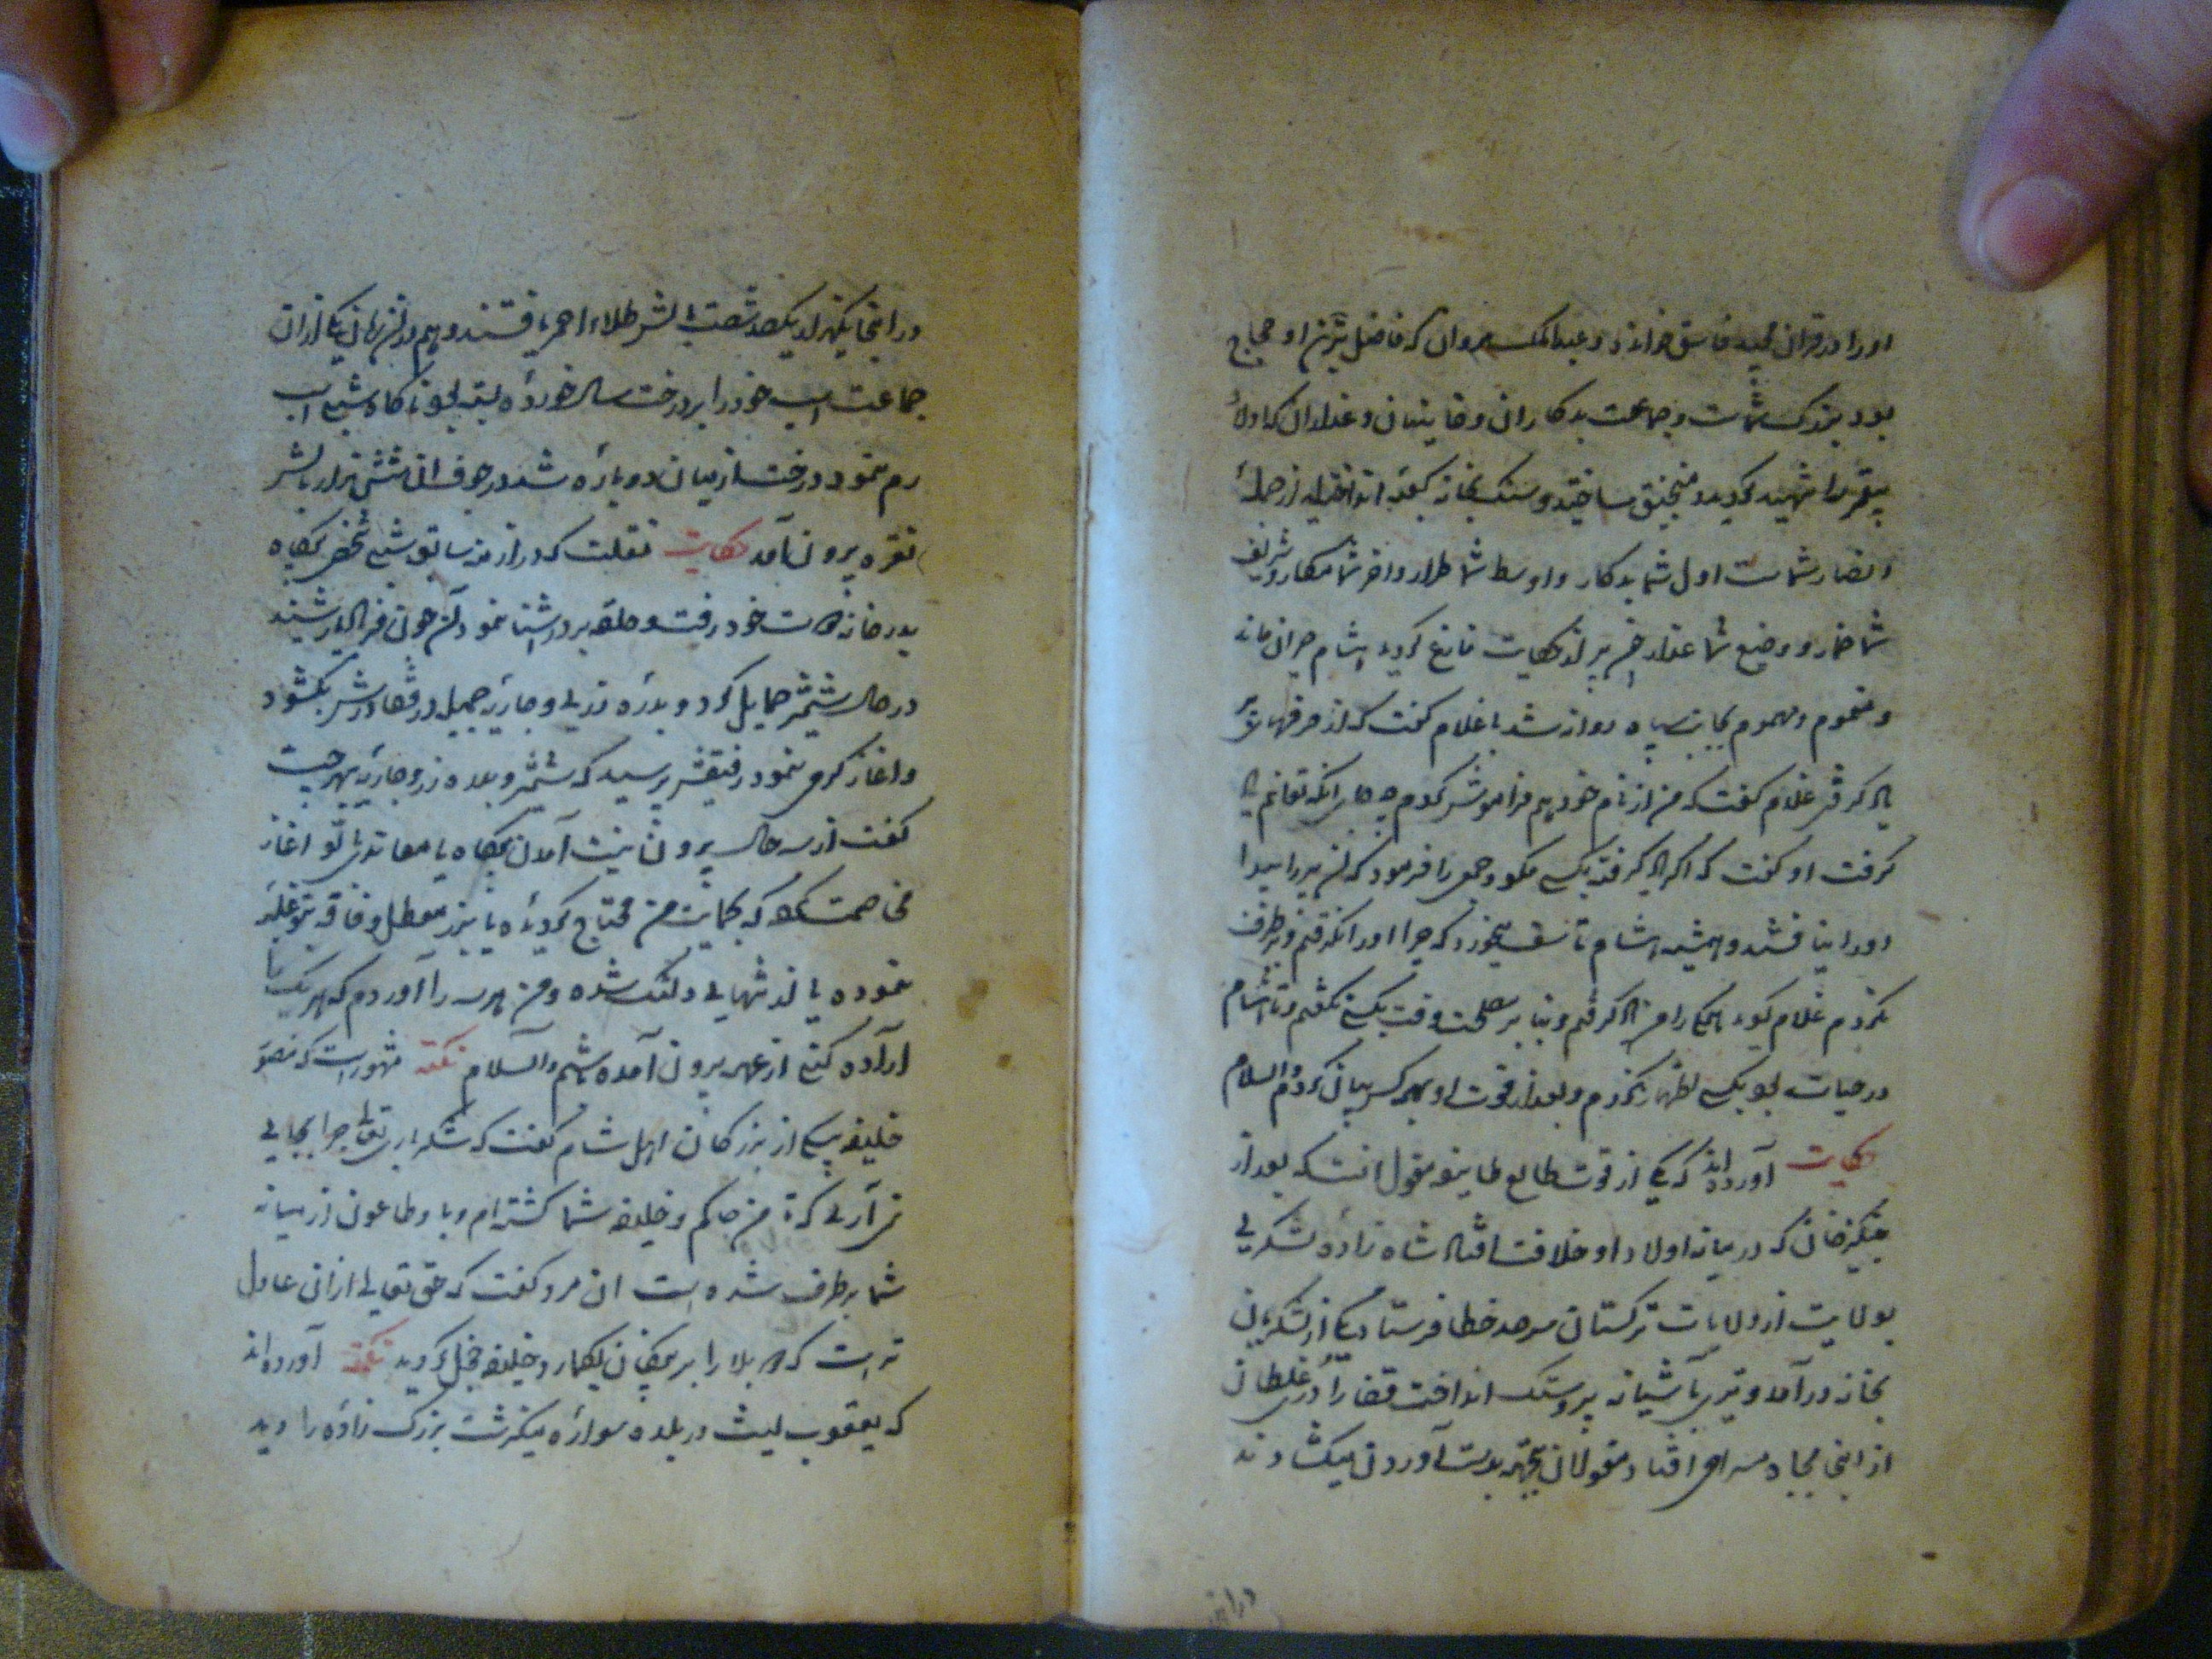 او را در قران مجید فاسق خوانده و عبدالملک مروان که فاضل ترین او حجاج
بود بزرگ شماست و جماعت بدکاران و خاینان و غداران که اولاد
پیغمبر را شهید کردید و منجنیق ساختید و سنگ بخانه کعبه انداختید از جمله
انصار شماست اول شما بدکار و اوسط شما طرار و اخر شما مکار و شریف
شما خمار و وضیع شما غدار چون پیر از حکایت فارغ کردید هشام حیران ماند
و مغموم و مهموم بجانب سپاه روانه شد با غلام کفت که از حرفهای پیر
یاد کرفتی غلام کفت که من از نام خود هم فراموش کردم چه جای انکه توانم یاد
کرفت او کفت که اگر یاد کرفته بکسی مکو و جمعی را فرمود که آن پیر را پیدا
او را نیافتند و همیشه هشام تاسف میخورد که چرا او را نکرفتم و برطرف
نکردم غلام کوید همکی را من یاد کرفتم و بنا بر مصلحت وقت بکسی نکفتم و تا هشام
در حیات بود بکسی اظهار نکردم و بعد از فوت او بهر کس بیان کردم والسلام
حکایت آورده‌اند که یکی از قوت طالع طایفه مغول انست که بعد از
چنگیز خان که در میانه اولاد او خلافت افتاد شاه زاده لشکری
بولایت از ولایات ترکستان سرحد خطا فرستاد یکی از لشکریان
بخانه درآمد و تیری بآشیانه پرستک انداخت قضا را در غلطان
از انجا بچاه سرای افتاد مغولان بجهة بدست آوردن میکشادند
در انجا
در انجا یکهزار و یکصد و شصت بالش طلاء احمر یافتند و هم در آن زمان یکی از ان
جماعت اسپ خود را بر درخت سال خورده بسته بود ناکاه شبی اسپ
رم نمود درخت از میان دو پاره شد در جوف ان شش هزار بالش
نقره بیرون آمد حکایت نقلست که در ازمنه سابق شبی شخصی بیکاه
بدر خانه دوست خود رفت و حلقه بر در اشنا نمود آن جون فرالدار شنید
در حال شمشیر حمایل کرد و بدره زری و جاریه جمیله در قفا در بکشود
و اغاز کرمی نمود رفیقش پرسید که شمشیر و بدره زر و جاریه بهر چیست
کفت از سه حال بیرون نیست آمدن بیکاه یا معاندی با تو اغاز
مخاصمت که بحمایت من محتاج کردیده یا بی زر معطل و فاقه بتو غلبه
نموده یا از تنهایی دلتنک شده و من هر سه را آوردم که هر یک را
اراده کنی از عهده بیرون آمده باشم والسلام نکته مشهور است که منصور
خلیفه بیکی از بزرکان اهل شام کفت که شکر باری تعالی چرا بجای
نمی آری که تا من حاکم و خلیفه شما کشته‌ام وبا و طاعون از میانه
شما برطرف شده است ان مرد کفت که حق تعالی از ان عادل
تر است که دو بلا را بر بندکان یکمارد خلیفه خجل کردید نکته آورده‌اند
که یعقوب لیث در بلده سواره میکذشت بزرک زاده را دید